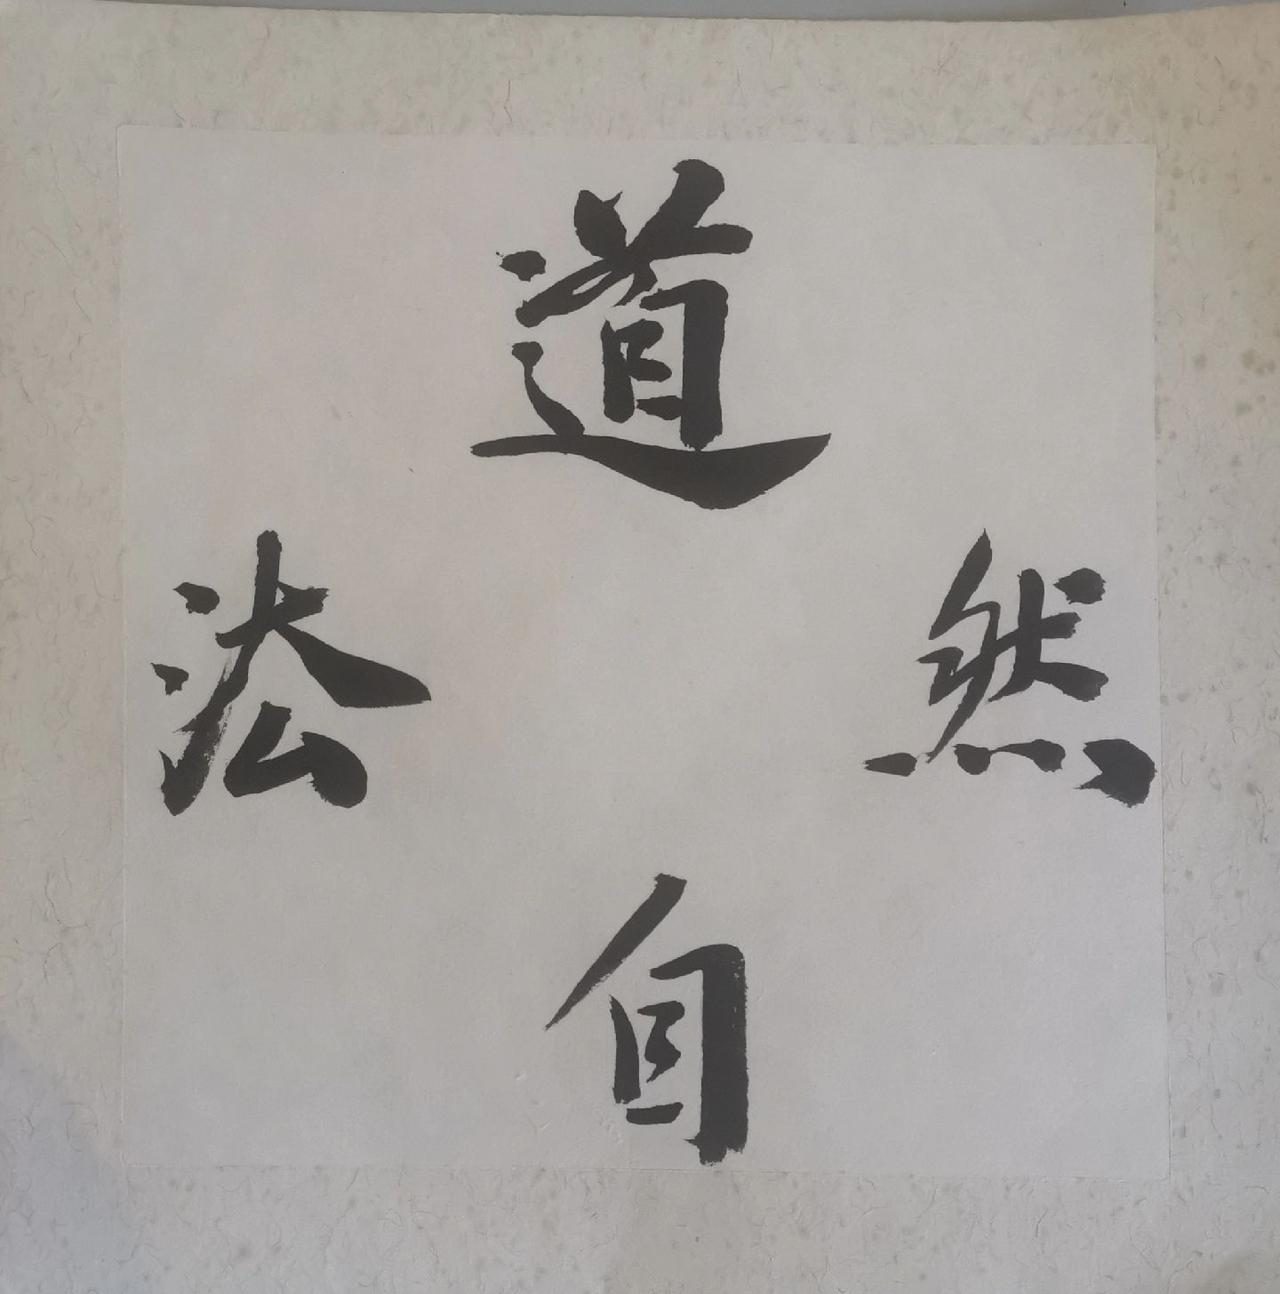 道
法
自
然